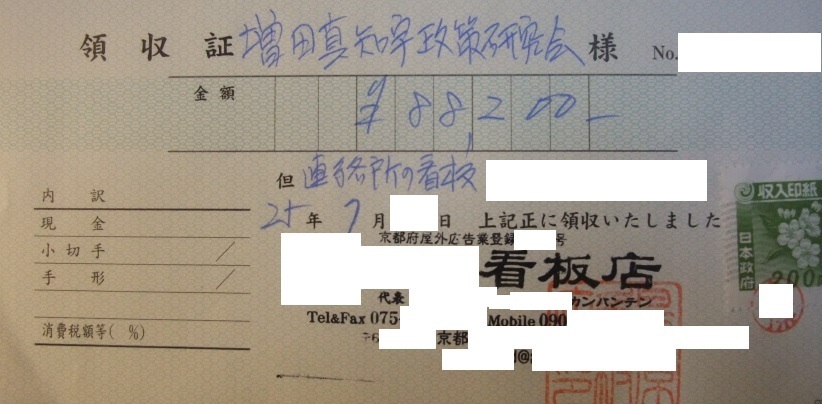 領収証 増田真知宇政策研究会 様 No.
金額 ¥88,200-
但 連絡所の看板
内訳
25年7月 日 上記正に領収いたしました
現金
京都府屋外広告業登録 号
小切手 /
看板店
手形 /
代表 カンバンテン
Tel&Fax 075- Mobile 090
消費税額等( %)
〒6 京都
@
収入印紙
日本政府
200円